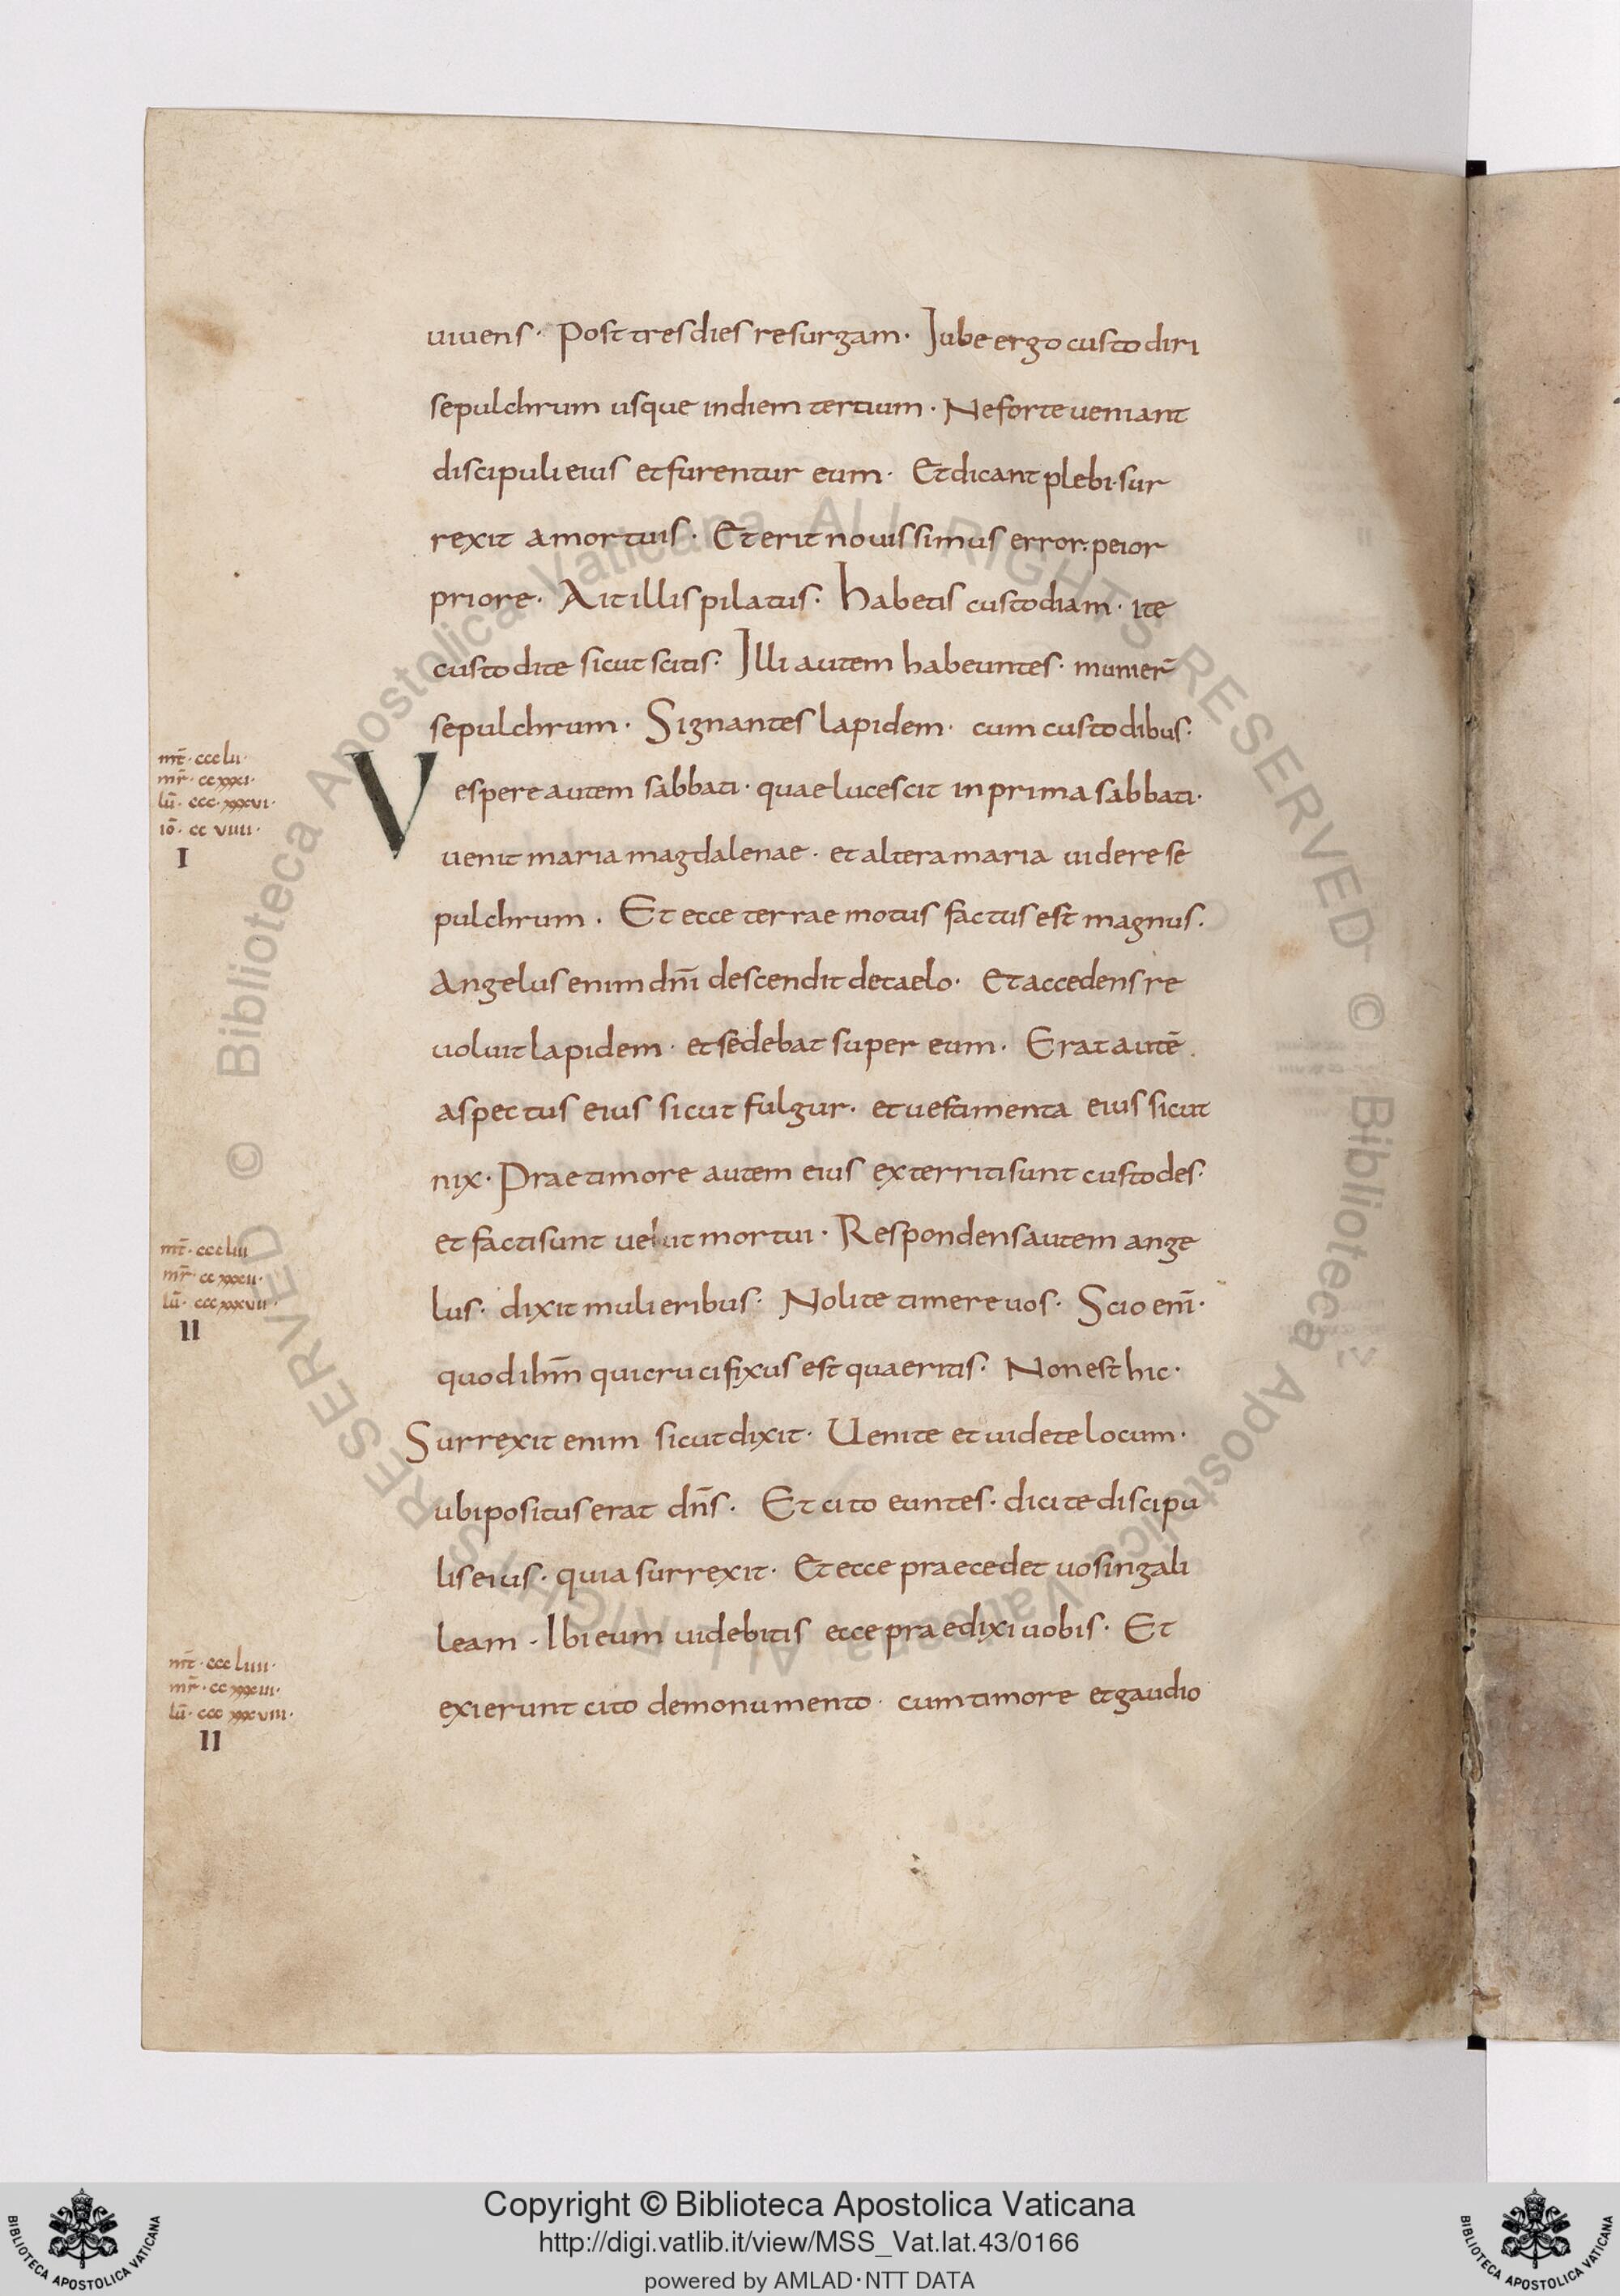 uiuens · Post tres dies resurgam · Iube ergo custodiri
sepulchrum usque in diem tertium · Ne forte ueniant
discipuli eius et furentur eum · Et dicant plebi · sur
rexit a mortuis · Et erit nouissimus error · peior
priore · Ait illis pilatus · habetis custodiam · ite
custodite sicut scitis · Illi autem habeuntes · munier̄
sepulchrum · Signantes lapidem · cum custodibus ·
mt̄ · ccc lii ·
mr̄ · cc xxxi ·
lū · ccc · xxxvi ·
iō · cc viiii ·
I
Vespere autem sabbati · quae lucescit in prima sabbati ·
uenit maria magdalenae · et altera maria uidere se
pulchrum · Et ecce terrae motus factus est magnus ·
Angelus enim dn̄i descendit de caelo · Et accedens re
uoluit lapidem · et sedebat super eum · Erat autē
aspectus eius sicut fulgur · et uestimenta eius sicut
nix · Prae timore autem eius exterriti sunt custodes ·
et facti sunt uelut mortui · Respondens autem ange
mt̄ · ccc liii
mr̄ · cc xxxii ·
lū · ccc xxxvii ·
II
lus · dixit mulieribus · Nolite timere uos · Scio eni̅ ·
quod ihm̄ qui crucifixus est quaeritis · Non est hic ·
Surrexit enim sicut dixit · Uenite et uidete locum ·
ubi positus erat dn̄s · Et cito euntes · dicite discipu
lis eius · quia surrexit · Et ecce praecedet uos in gali
leam · Ibi eum uidebitis ecce praedixi uobis · Et
mt̄ · ccc liiii ·
mr̄ · cc xxxiii ·
lū · ccc xxxviii ·
II
exierunt cito de monumento · cum timore et gaudio
© Biblioteca Apostolica Vaticana ALL RIGHTS RESERVED © Biblioteca Apostolica Vaticana ALL RIGHTS RESERVED
Copyright © Biblioteca Apostolica Vaticana
http://digi.vatlib.it/view/MSS_Vat.lat.43/0166
powered by AMLAD·NTT DATA
BIBLIOTECA APOSTOLICA VATICANA
BIBLIOTECA APOSTOLICA VATICANA